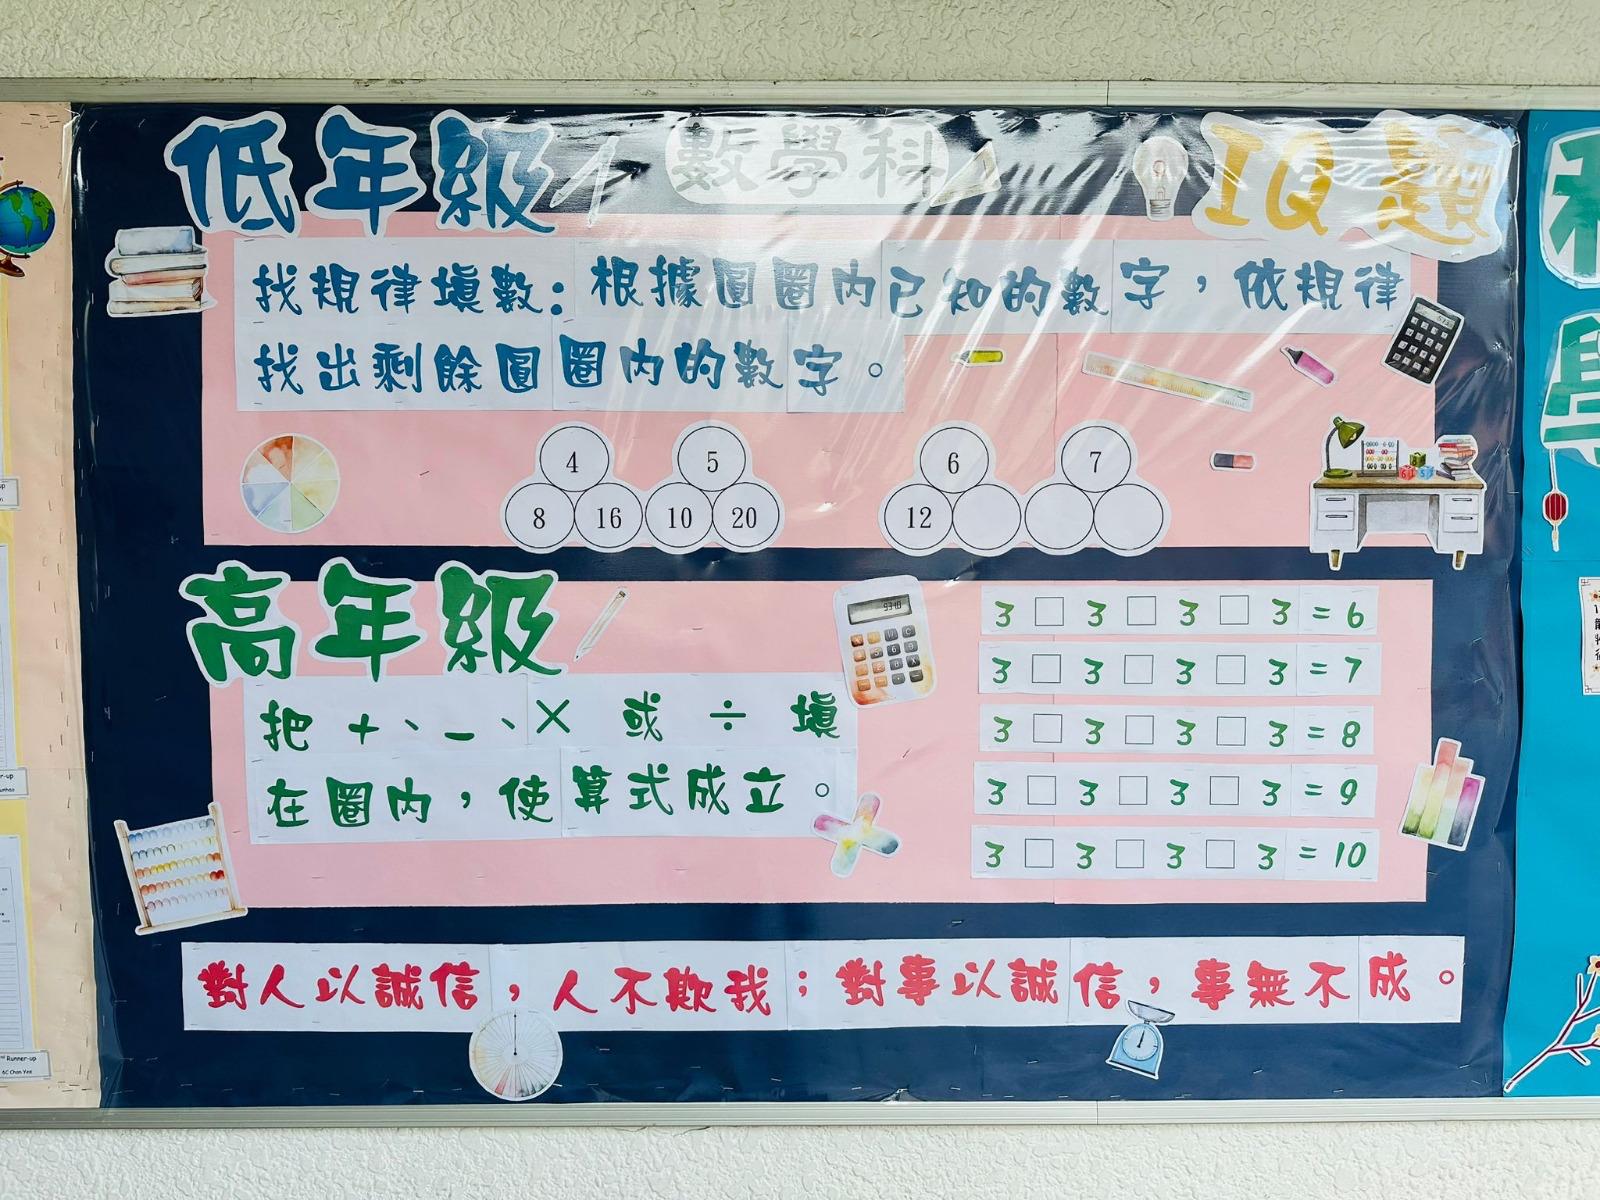 低年級 數學科 IQ題
找規律填數：根據圓圈內已知的數字，依規律
找出剩餘圓圈內的數字。
4 5 6 7
8 16 10 20 12
高年級
把 +、-、× 或 ÷ 填
在圈內，使算式成立。
3 □ 3 □ 3 □ 3 = 6
3 □ 3 □ 3 □ 3 = 7
3 □ 3 □ 3 □ 3 = 8
3 □ 3 □ 3 □ 3 = 9
3 □ 3 □ 3 □ 3 = 10
對人以誠信，人不欺我；對事以誠信，事無不成。
Runner-up
6C Chan Yee